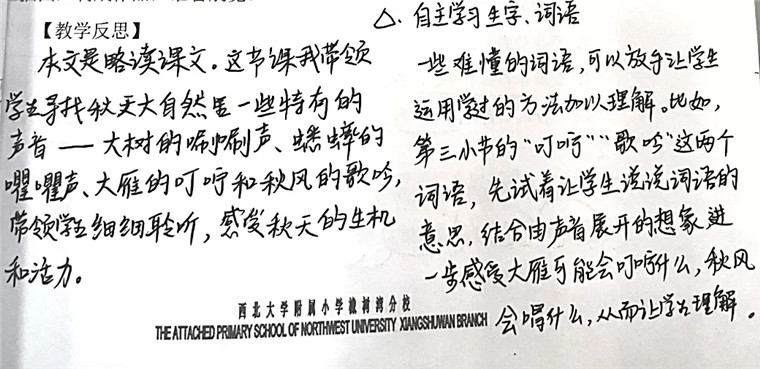 【教学反思】
本文是略读课文。这节课我带领
学生寻找秋天大自然里一些特有的
声音——大树的唰唰声、蟋蟀的
㘗㘗声、大雁的叮咛和秋风的歌吟,
带领学生细细聆听,感受秋天的生机
和活力。
△. 自主学习生字、词语
一些难懂的词语,可以放手让学生
运用学过的方法加以理解。比如,
第三小节的“叮咛”“歌吟”这两个
词语,先试着让学生说说词语的
意思,结合由声音展开的想象进
一步感受大雁可能会叮咛什么,秋风
会唱什么,从而让学生理解。
西北大学附属小学橡树湾分校
THE ATTACHED PRIMARY SCHOOL OF NORTHWEST UNIVERSITY XIANGSHUWAN BRANCH